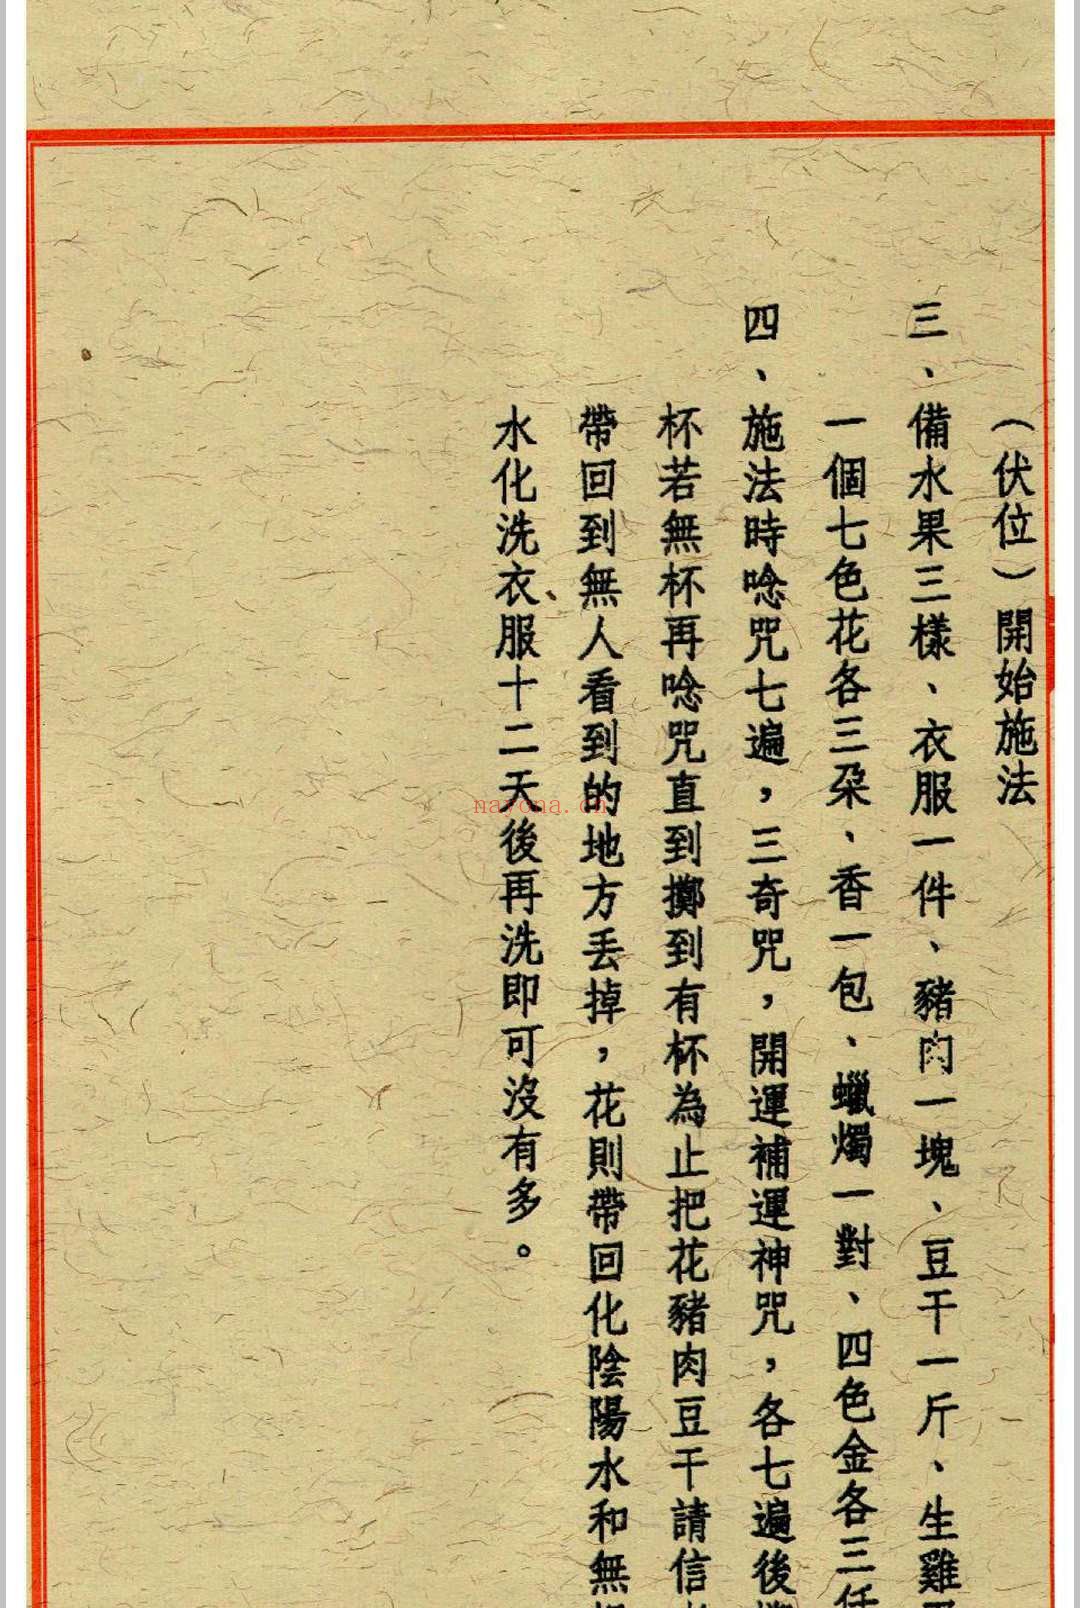 （伏位）開始施法
三、備水果三樣、衣服一件、豬肉一塊、豆干一斤、生雞
一個七色花各三朵、香一包、蠟燭一對、四色金各三
四、施法時唸咒七遍，三奇咒，開運補運神咒，各七遍後
杯若無杯再唸咒直到擲到有杯為止把花豬肉豆干請信
帶回到無人看到的地方丟掉，花則帶回化陰陽水和無
水化洗衣服十二天後再洗即可沒有多。
nayona.cn